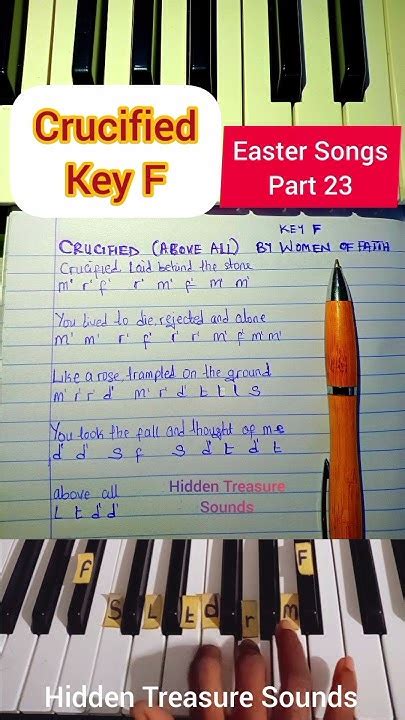 Crucified
Key F
Easter Songs
Part 23
KEY F
CRUCIFIED (ABOVE ALL) BY WOMEN OF FAITH
Crucified laid behind the stone
m' r' f' r' m' f' m' m'
You lived to die, rejected and alone
m' m' r' f' r' r' m' f' m' m'
Like a rose, trampled on the ground
m' r' r' d' m' r' d' t t l s
You took the fall and thought of me
d' d' s f s d' t d' t
above all
l t d' d'
Hidden Treasure
Sounds
f S L t d r m F
Hidden Treasure Sounds